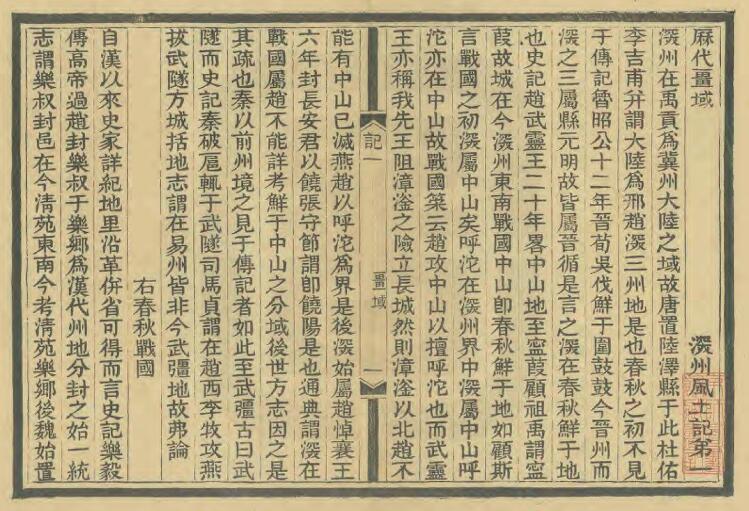 厤代畺域　㴱州風土記第一
㴱州在禹貢爲冀州大陸之域故唐置陸澤縣于此杜佑
李吉甫幷謂大陸爲邢趙㴱三州地是也春秋之初不見
于傳記魯昭公十二年晉荀吳伐鮮于圍鼓鼓今晉州而
㴱之三屬縣元明故皆屬晉循是言之㴱在春秋鮮于地
也史記趙武靈王二十年畧中山地至寍葭顧祖禹謂寍
葭故城在今㴱州東南戰國中山卽春秋鮮于地如顧斯
言戰國之初㴱屬中山矣呼沱在㴱州界中㴱屬中山呼
沱亦在中山故戰國策云趙攻中山以擅呼沱也而武靈
王亦稱我先王阻漳滏之險立長城然則漳滏以北趙不
記一　畺域　一
能有中山已滅燕趙以呼沱爲界是後㴱始屬趙悼襄王
六年封長安君以饒張守節謂卽饒陽是也通典謂㴱在
戰國屬趙不能詳考鮮于中山之分域後世方志因之是
其疏也秦以前州境之見于傳記者如此至武彊古曰武
隧而史記秦破扈輒于武隧司馬貞謂在趙西李牧攻燕
拔武隧方城括地志謂在易州皆非今武彊地故弗論
右春秋戰國
自漢以來史家詳紀地里沿革倂省可得而言史記樂毅
傳高帝過趙封樂叔于樂鄉爲漢代州地分封之始一統
志謂樂叔封邑在今淸苑東南今考淸苑樂鄉後魏始置